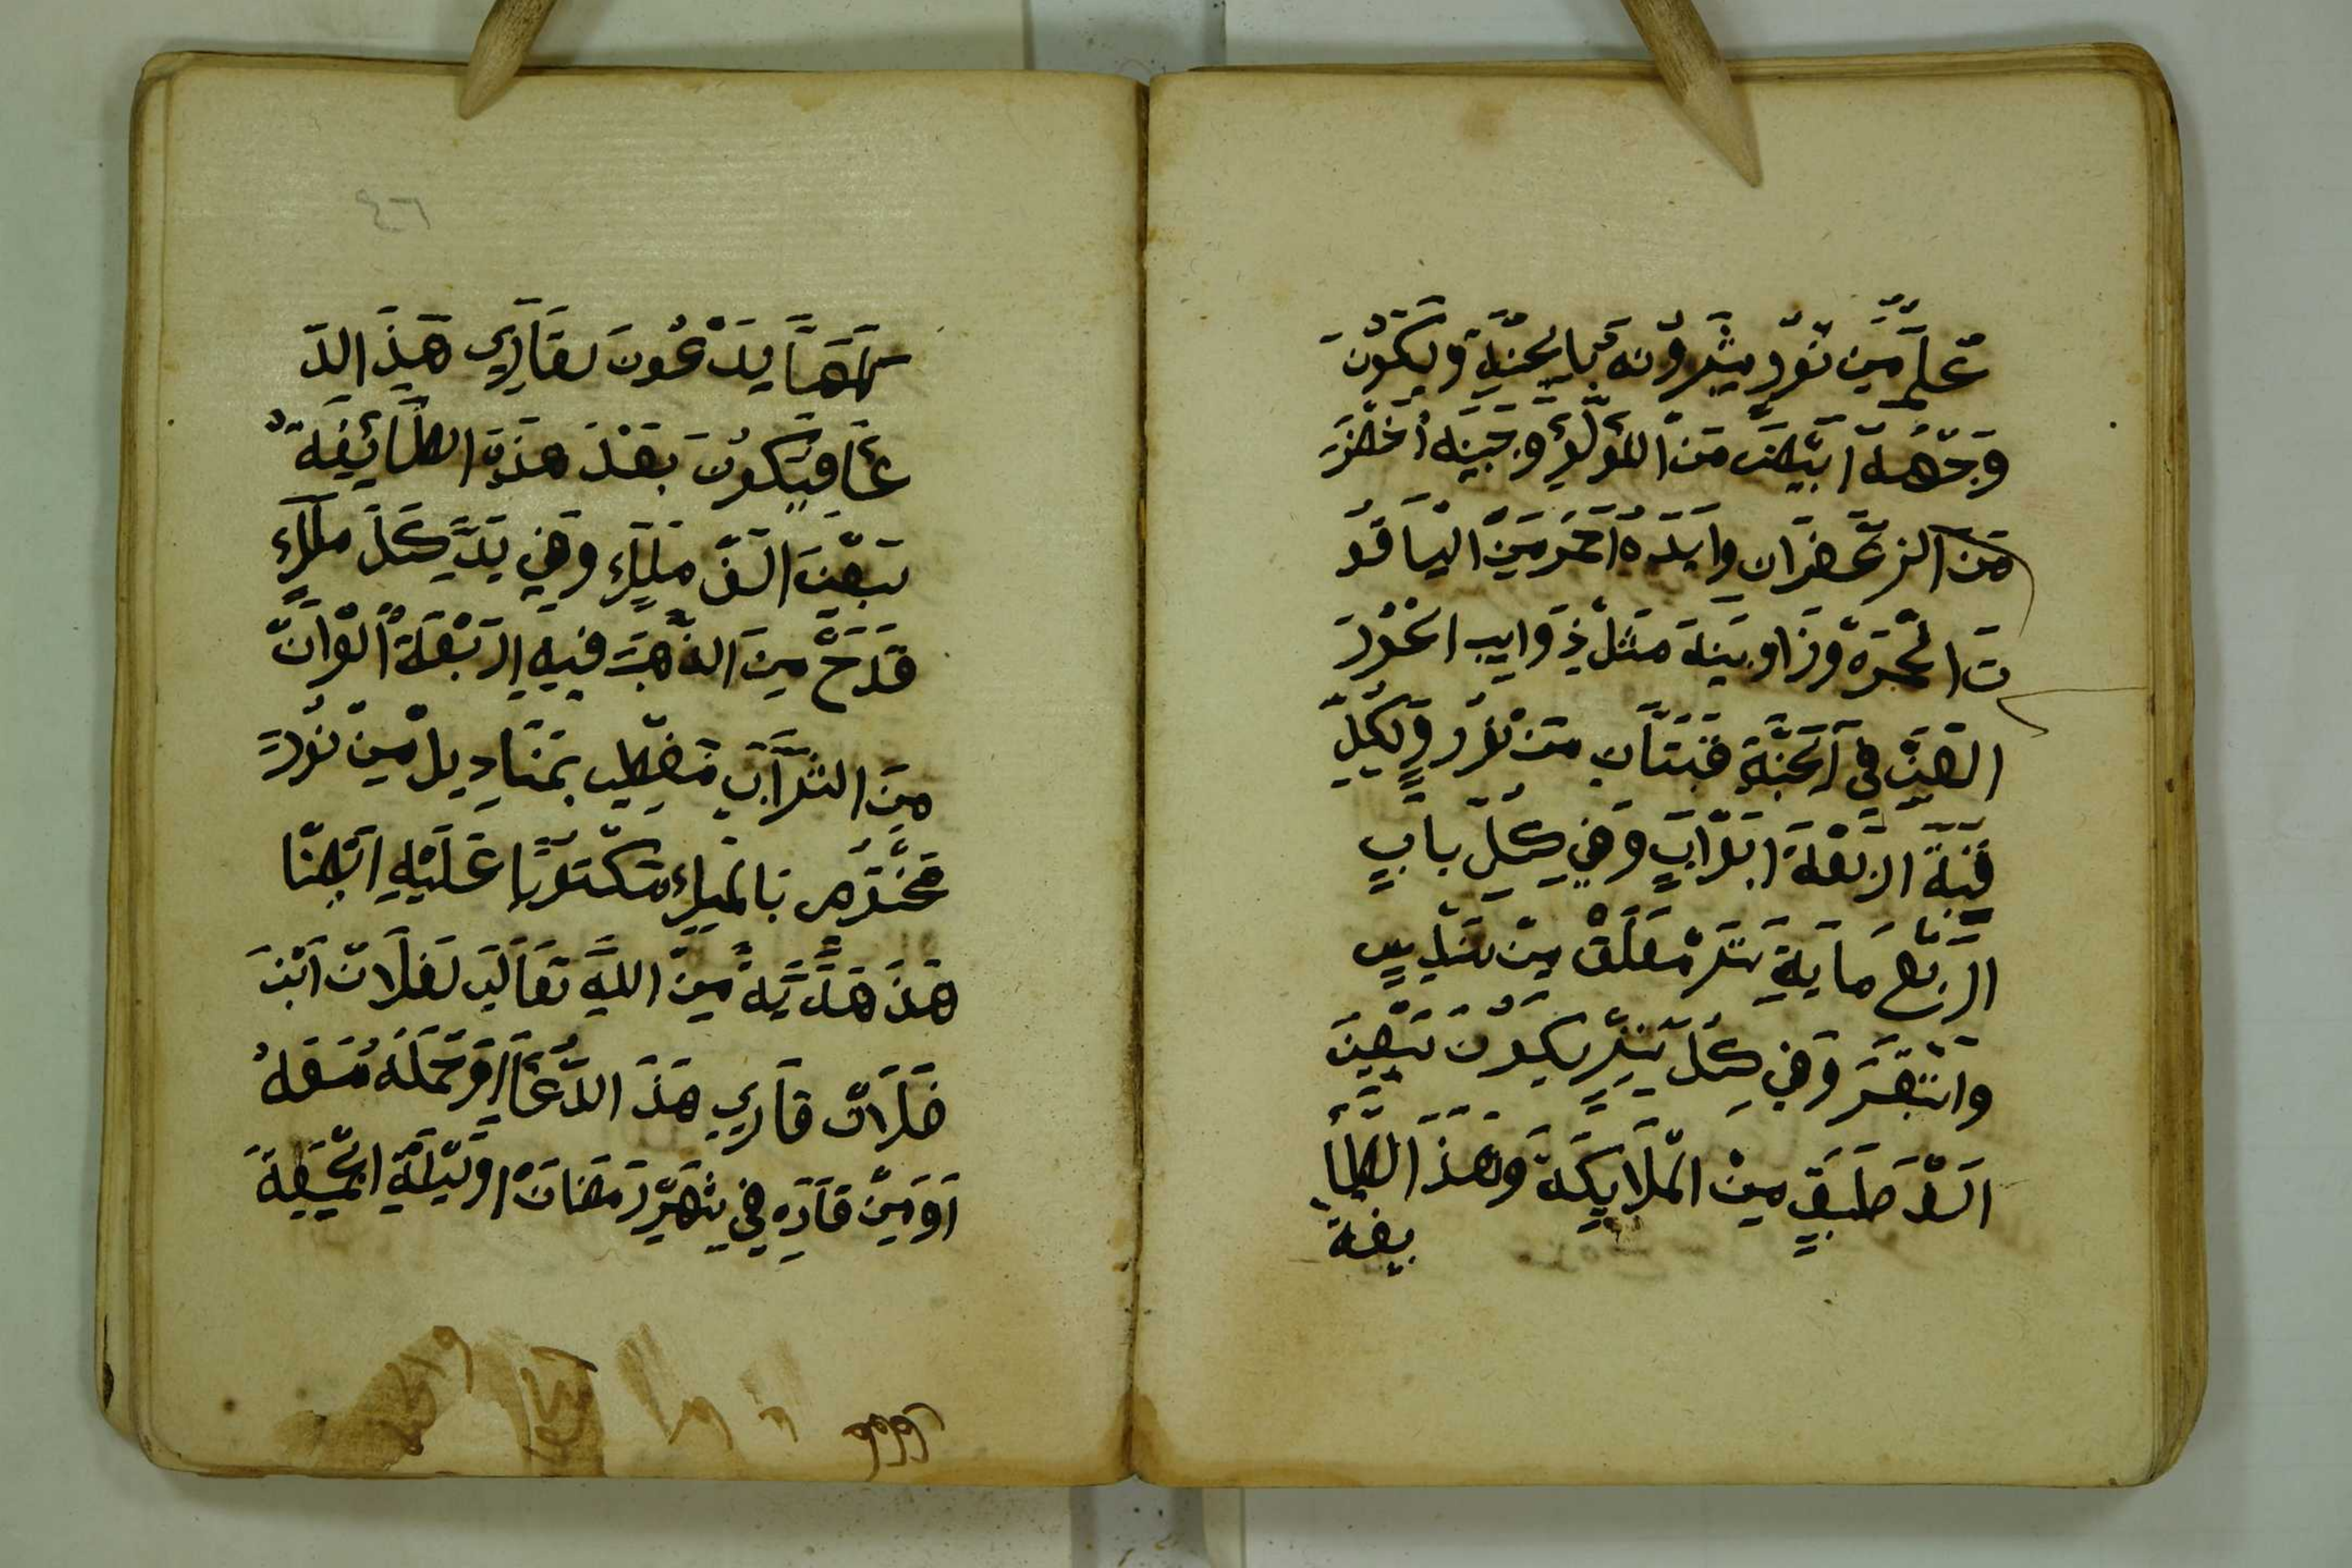 عَلَمٍ مِّن نُوْرٍ يبَشِّرُوْنهُ بِالجنَّةِ وَيَكُوْنَ
وَجْهُهُ ابْيَضَ مِنَ اللُّؤْلُؤِ وَجَبِينه اخْضَرَ
مِنَ الزعْفَرَان وَايَدَهُ احْمَر مِنَ اليَاقُو
تَ الحُمْرَةِ وَزَاوينه مثلْ ذَوَايب الحُوْرَ
العين في الجنَّةِ قبتَانِ مِنْ نُوْرٍ وَلِكُلِّ
قُبَّةَ ارْبَعَة ابْوَابٍ وَفي كِلّ بابٍ
ارْبَع مَايَةِ سترْ مُعَلقْ مِنْ سُنْدسٍ
وَاسْتَبْرَقَ وَفي كُلّ سِتْرٍ يَكُوْنَ سَبْعِينَ
الفَ طَبَقٍ مِنَ المَلَايِكَةَ وَهَذَ الطَا
يفة
كلهَا يَدْعُونَ لقَارِي هَذَ الدَ
عَا فيَكُونَ بَعْدَ هذه الطَائِفَةُ
سَبْعِينَ الفَ مَلَكٍ وَفي يَدِ كُلَّ مَلَكٍ
قَدَحْ مِنَ الذَهَبَ فيهِ ارْبَعَةُ الْوَانْ
مِنَ الشرَابِ مُغَطي بمَنَادِيل مِنْ نُوْرٍ
مَخْتُومْ بالمسِكِ مَكْتُوبًا عَلَيْهِ ايْضًا
هَذَ هَدِيَّةً مِنَ اللهِ تَعَالَى لفُلَانْ ابْنَ
فلَانْ قَارِي هَذَ الدُّعَا اوْ حَمَلَهُ مَعَهُ
اوَ مَنْ قَارَهِ في شَهْرِ رَمَضَانْ اوْ لَيْلَةِ الجُمْعَةَ